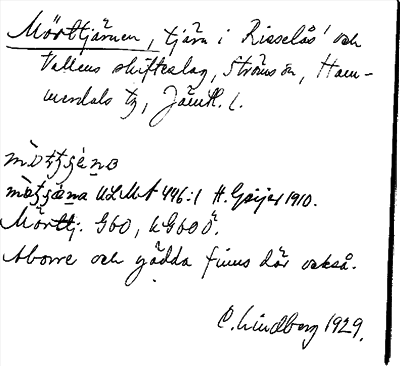 Mörttjärnen, tjärn i Risselås' och
Vallens skifteslag, Strömsön, Ham-
merdals tg, Jämtl. l.
mò̀ţţjɛ́ṇɒ
mòţjǽṇa ULMA 446:1 H. Geijer 1910.
Mörttj. G60, UG60Ö.
Aborre och gädda finns där också.
C. Lindberg 1929.